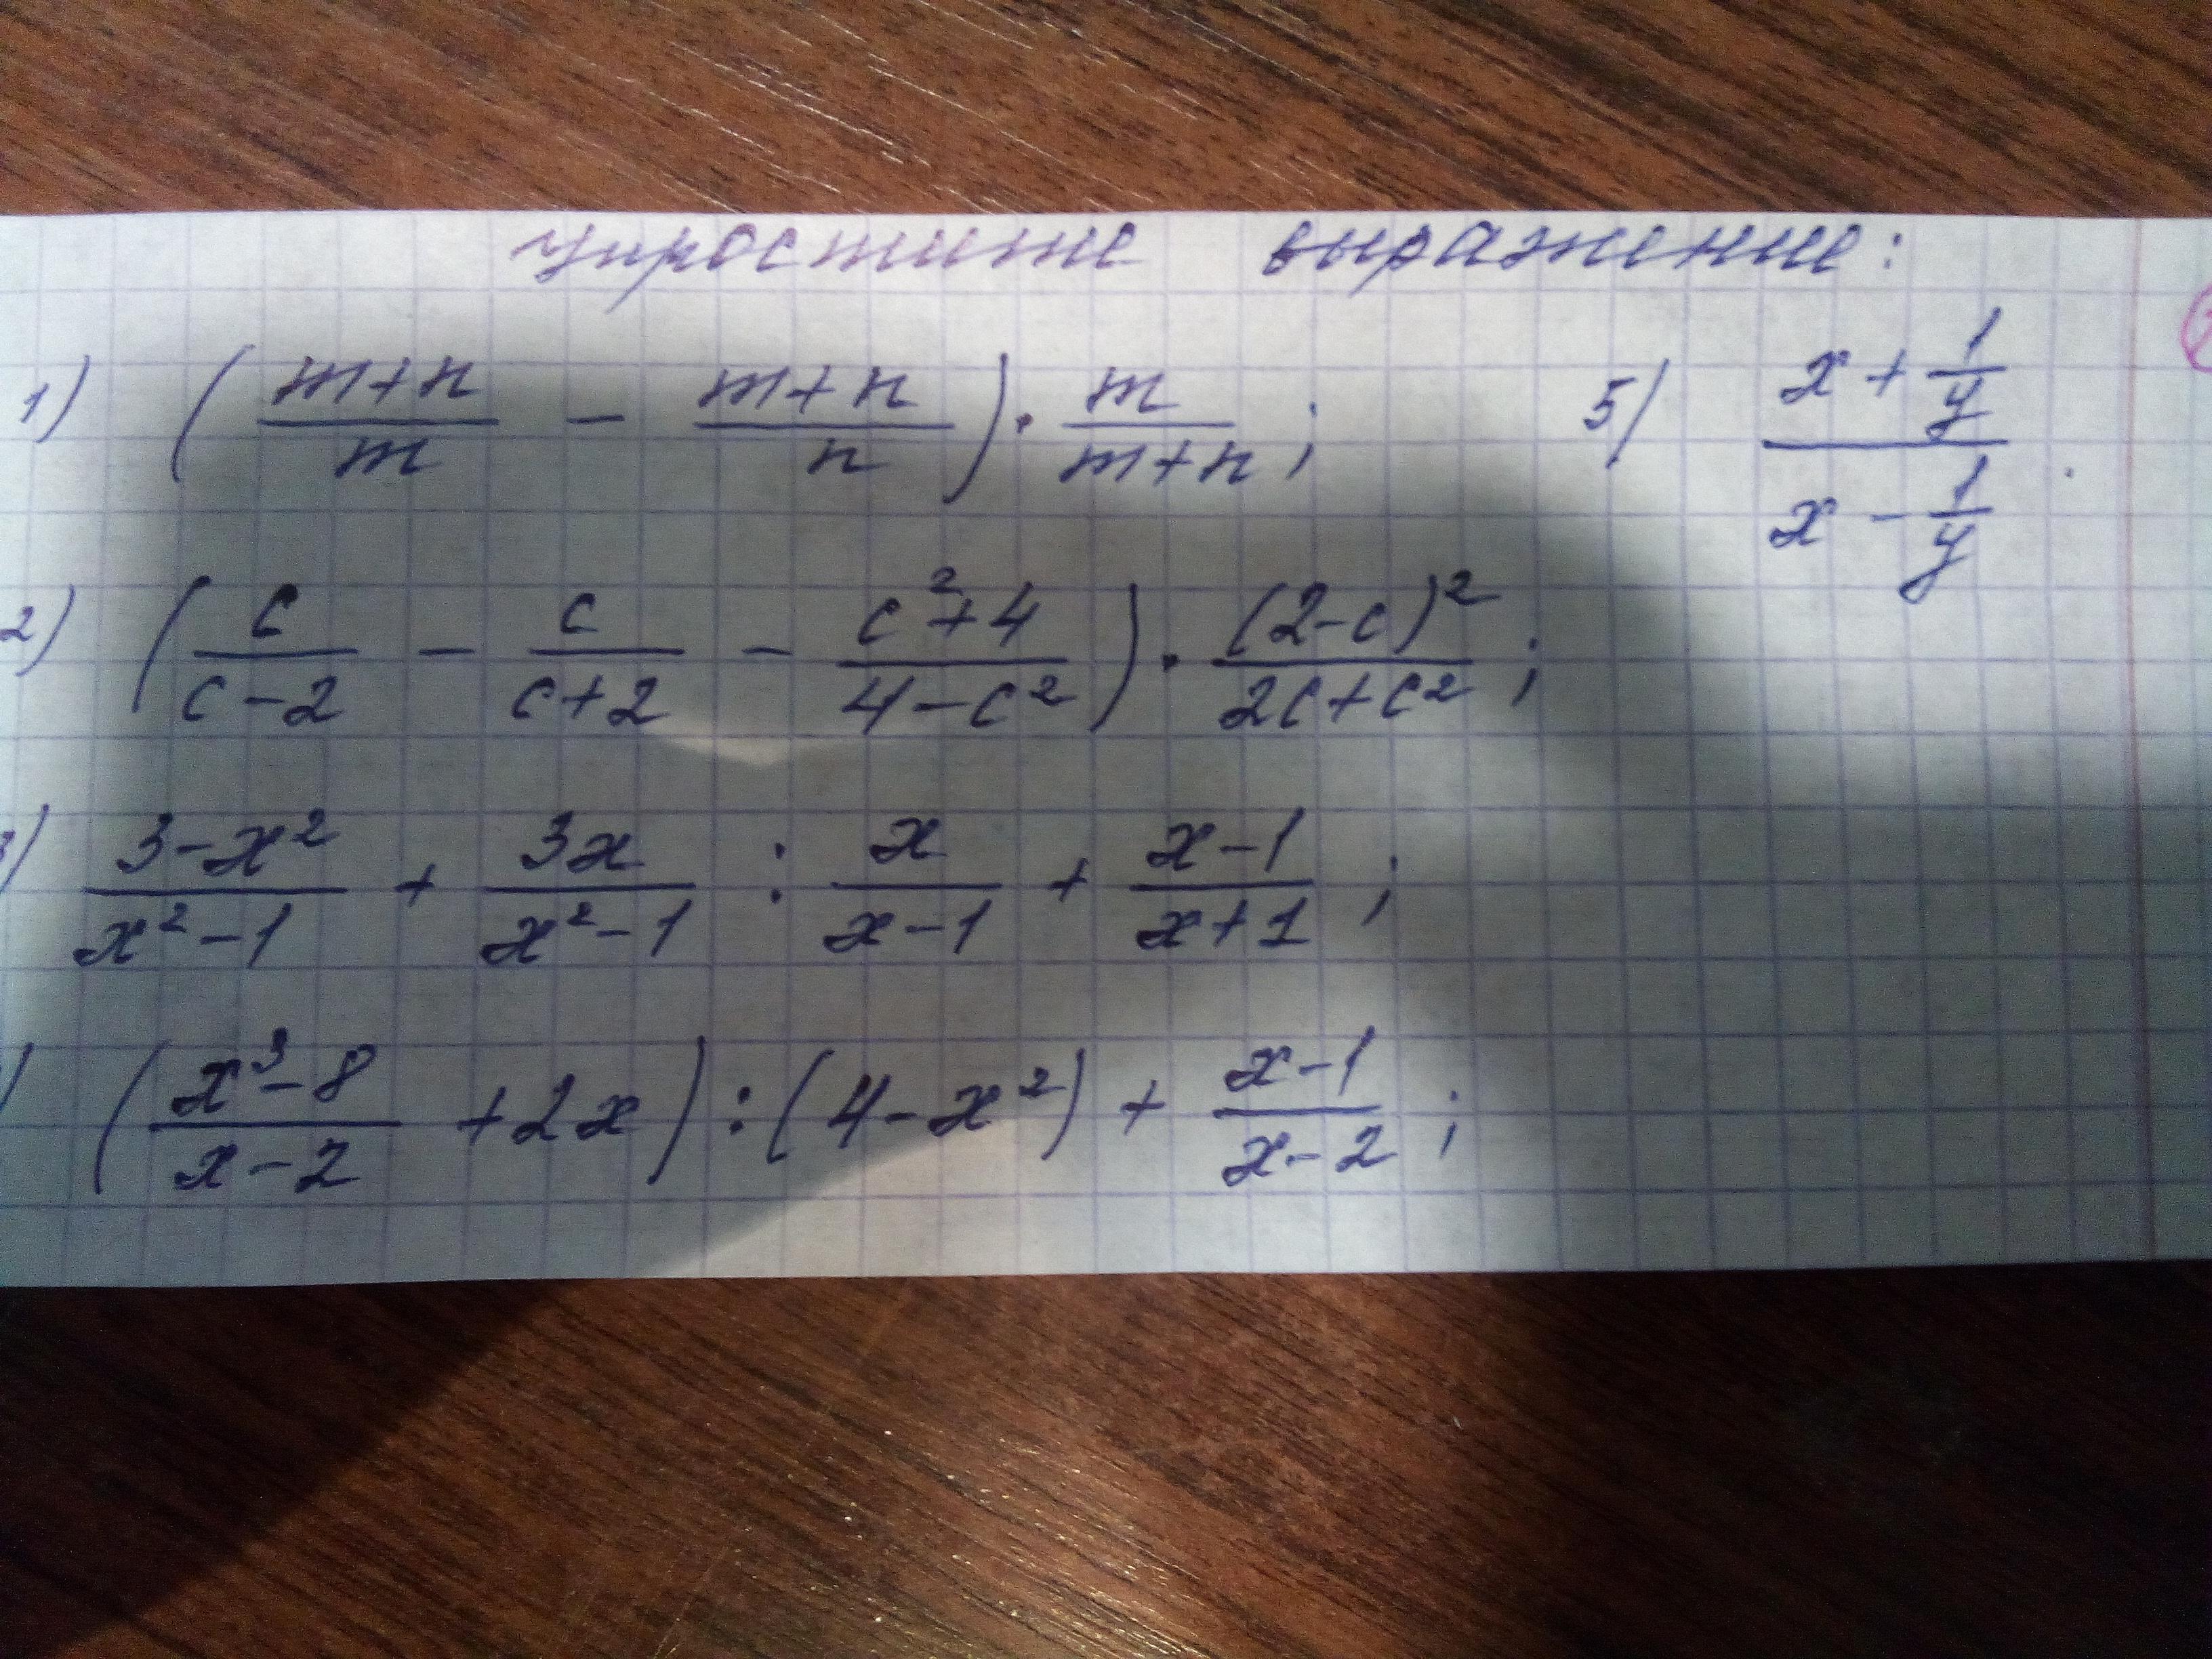 упростите выражение:
1) ( (m+n)/m − (m+n)/n ) · m/(m+n) ;
5) (x + 1/y)/(x − 1/y) .
2) ( c/(c−2) − c/(c+2) − (c²+4)/(4−c²) ) · (2−c)²/(2c+c²) ;
3) (3−x²)/(x²−1) + 3x/(x²−1) : x/(x−1) + (x−1)/(x+1) ;
) ( (x³−8)/(x−2) + 2x ) : (4−x²) + (x−1)/(x−2) ;